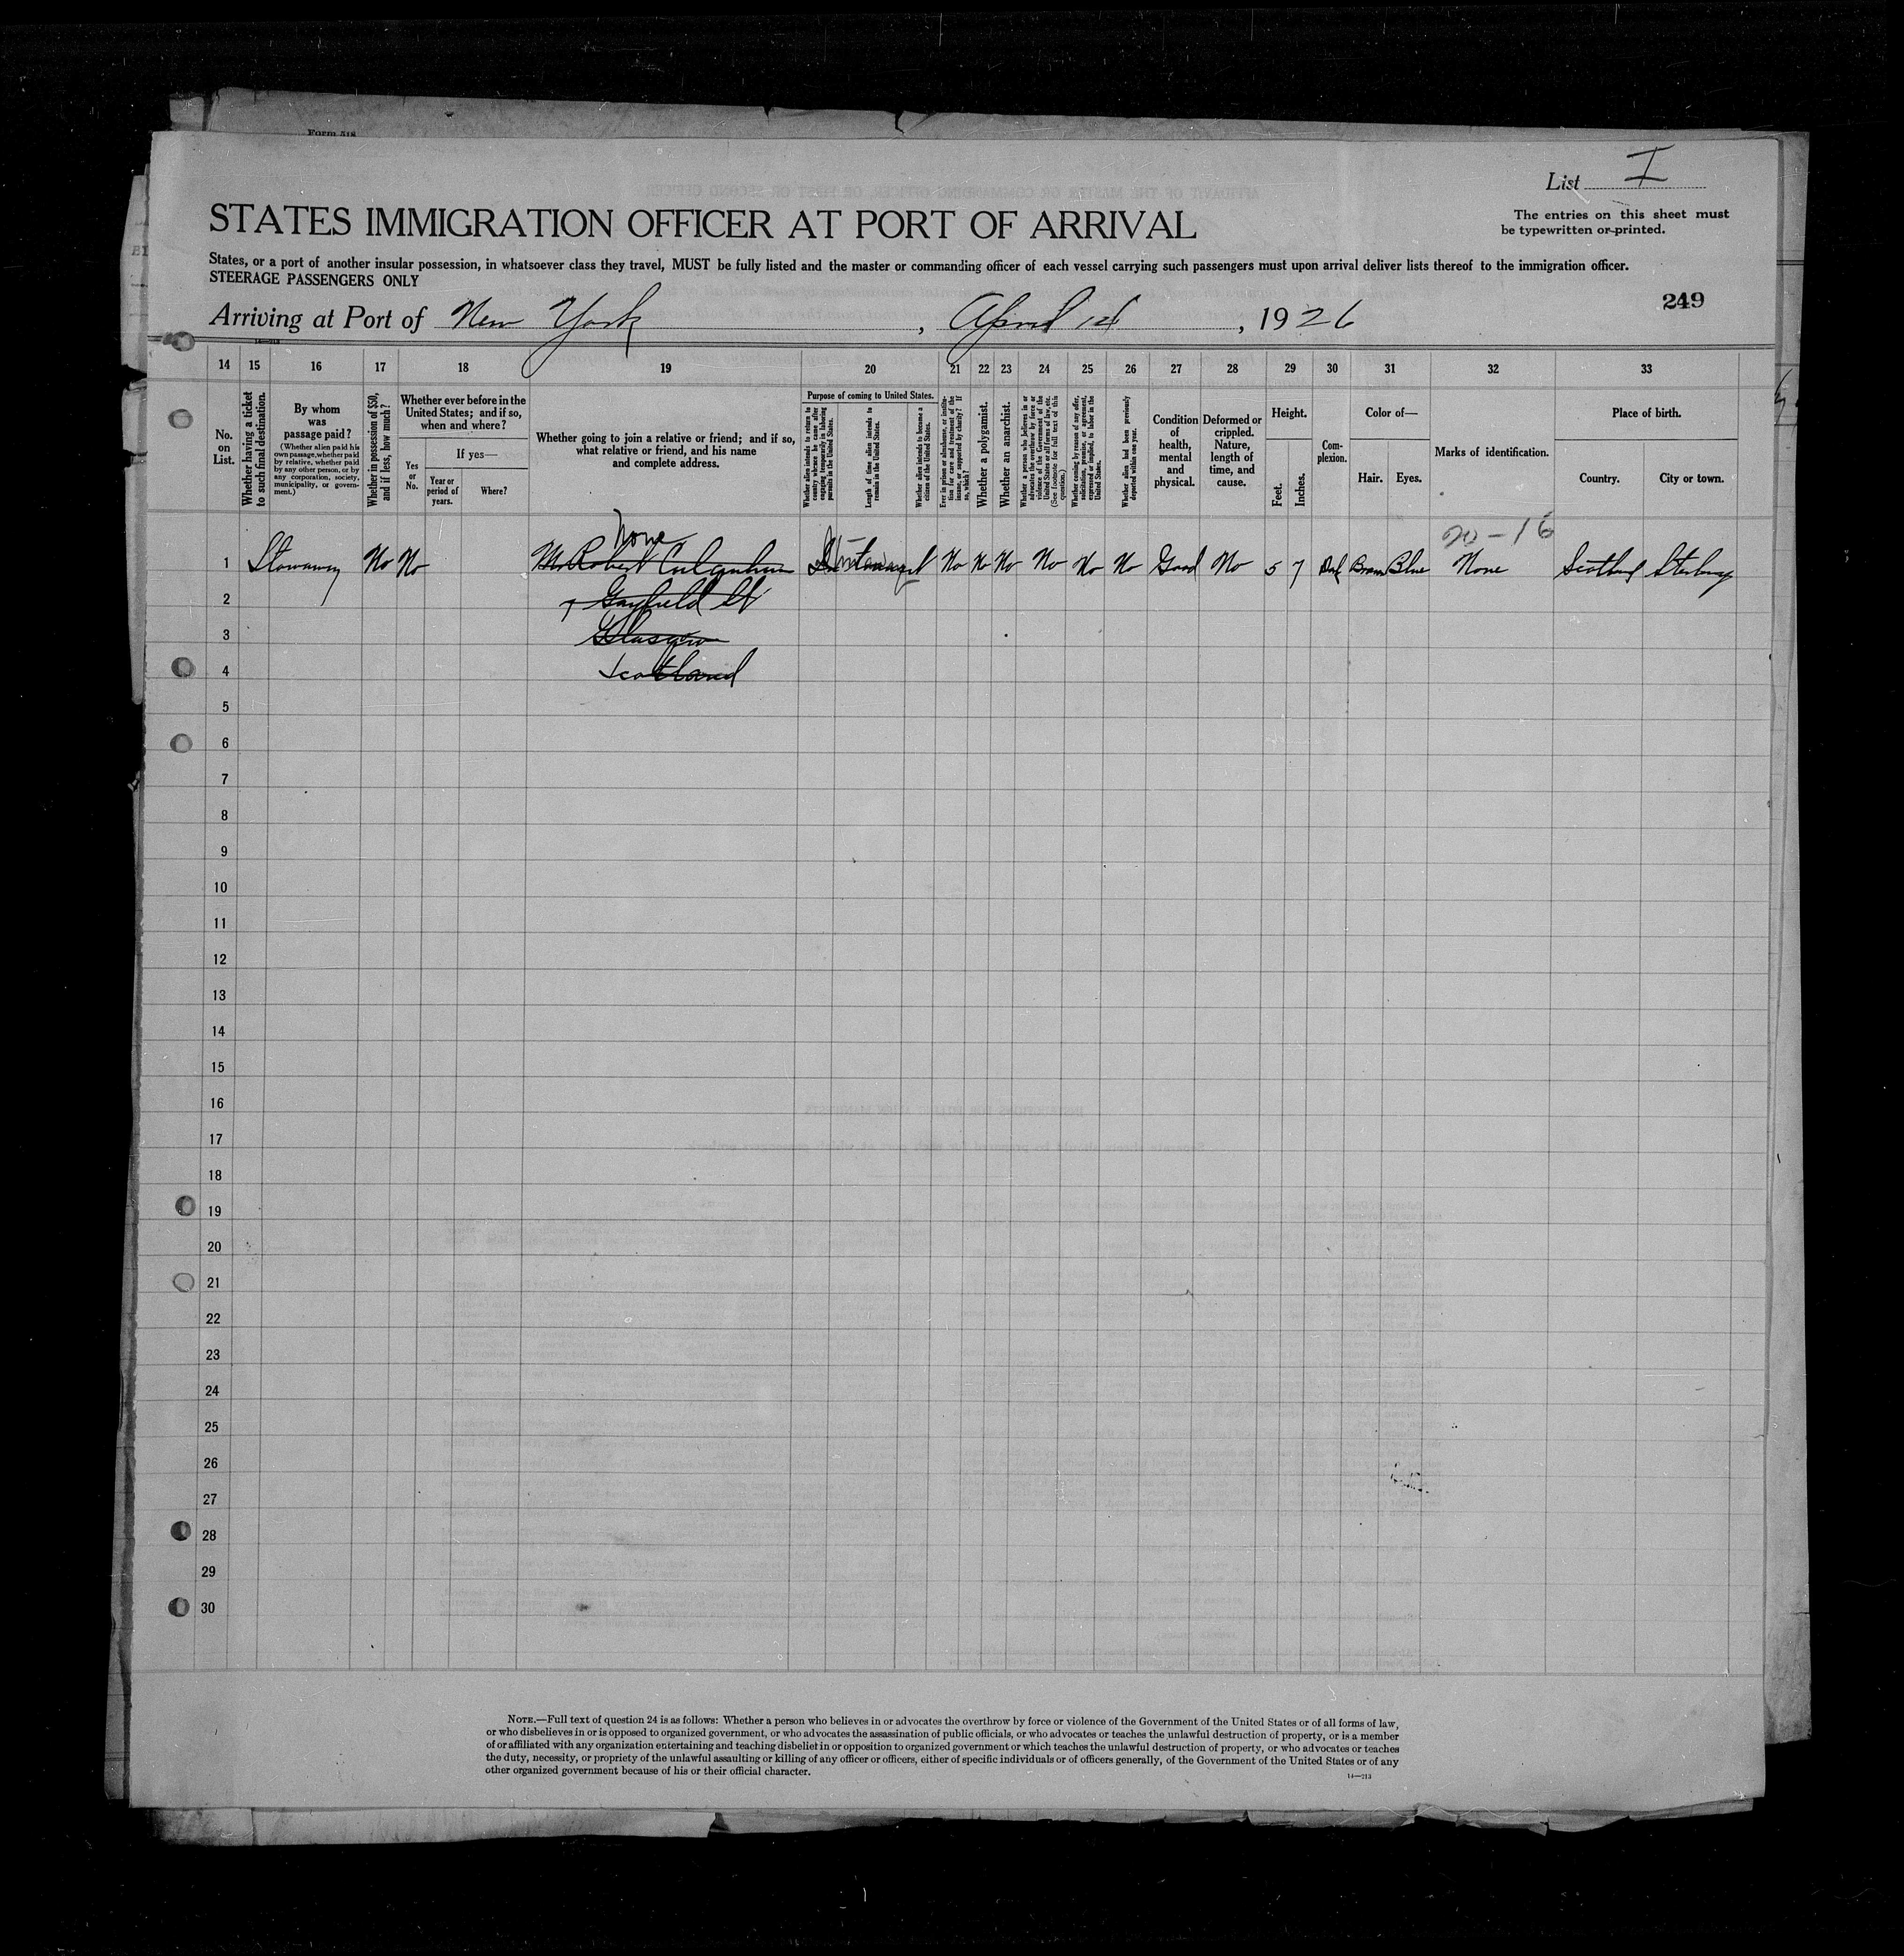 Form 518
List I
The entries on this sheet must
be typewritten or printed.
STATES IMMIGRATION OFFICER AT PORT OF ARRIVAL
States, or a port of another insular possession, in whatsoever class they travel, MUST be fully listed and the master or commanding officer of each vessel carrying such passengers must upon arrival deliver lists thereof to the immigration officer.
STEERAGE PASSENGERS ONLY
249
Arriving at Port of New York, April 14, 1926
14 15 16 17 18 19 20 21 22 23 24 25 26 27 28 29 30 31 32 33
No.
on
List.
Whether having a ticket
to such final destination.
By whom
was
passage paid?
(Whether alien paid his
own passage, whether paid
by relative, whether paid
by any other person, or by
any corporation, society,
municipality, or govern-
ment.)
Whether in possession of $50,
and if less, how much?
Whether ever before in the
United States; and if so,
when and where?
Yes
or
No.
If yes—
Year or
period of
years.
Where?
Whether going to join a relative or friend; and if so,
what relative or friend, and his name
and complete address.
Purpose of coming to United States.
Whether alien intends to return to
country whence he came after
engaging temporarily in laboring
pursuits in the United States.
Length of time alien intends to
remain in the United States.
Whether alien intends to become a
citizen of the United States.
Ever in prison or almshouse, or institu-
tion for care and treatment of the
insane, or supported by charity? If
so, which?
Whether a polygamist.
Whether an anarchist.
Whether a person who believes in or
advocates the overthrow by force or
violence of the Government of the
United States or all forms of law, etc.
(See footnote for full text of this
question.)
Whether coming by reason of any offer,
solicitation, promise, or agreement,
expressed or implied, to labor in the
United States.
Whether alien had been previously
deported within one year.
Condition
of
health,
mental
and
physical.
Deformed or
crippled.
Nature,
length of
time, and
cause.
Height.
Feet.
Inches.
Com-
plexion.
Color of—
Hair.
Eyes.
Marks of identification.
Place of birth.
Country.
City or town.
None
20-16
1 Stowaway No No Mr Robert No No No No No No Good No 5 7 Blue None Scotland
2 7 Garfield St
3 Glasgow
4 Scotland
5
6
7
8
9
10
11
12
13
14
15
16
17
18
19
20
21
22
23
24
25
26
27
28
29
30
NOTE.—Full text of question 24 is as follows: Whether a person who believes in or advocates the overthrow by force or violence of the Government of the United States or of all forms of law,
or who disbelieves in or is opposed to organized government, or who advocates the assassination of public officials, or who advocates or teaches the unlawful destruction of property, or is a member
of or affiliated with any organization entertaining and teaching disbelief in or opposition to organized government or which teaches the unlawful destruction of property, or who advocates or teaches
the duty, necessity, or propriety of the unlawful assaulting or killing of any officer or officers, either of specific individuals or of officers generally, of the Government of the United States or of any
other organized government because of his or their official character.
14—213